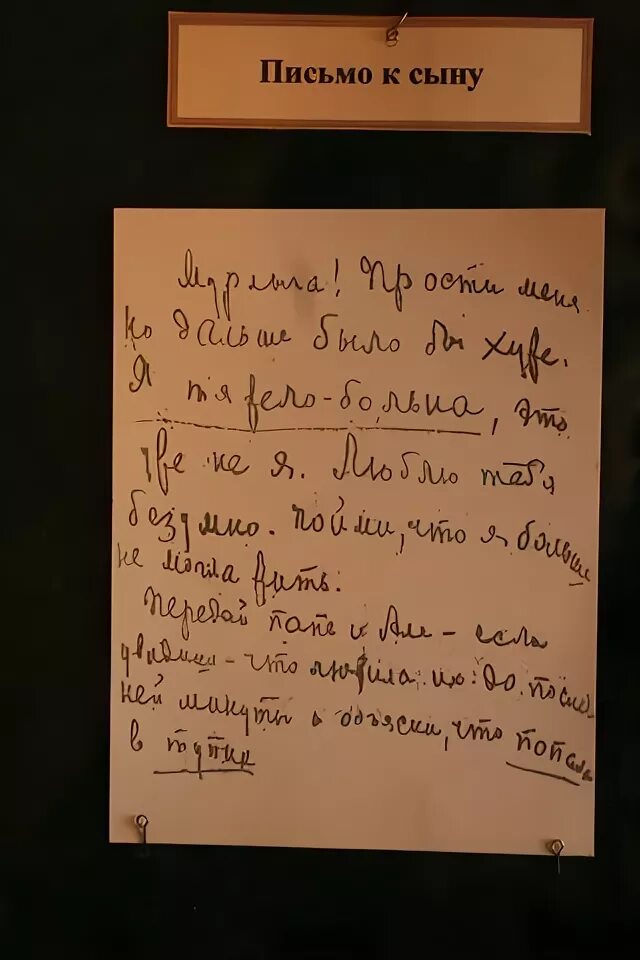 Письмо к сыну
Мурлыга! Прости меня
но дальше было бы хуже.
Я тяжело-больна, это
уже не я. Люблю тебя
безумно. Пойми, что я больше
не могла жить.
Передай папе и Але – если
увидишь – что любила их до послед-
ней минуты и объясни, что попала
в тупик